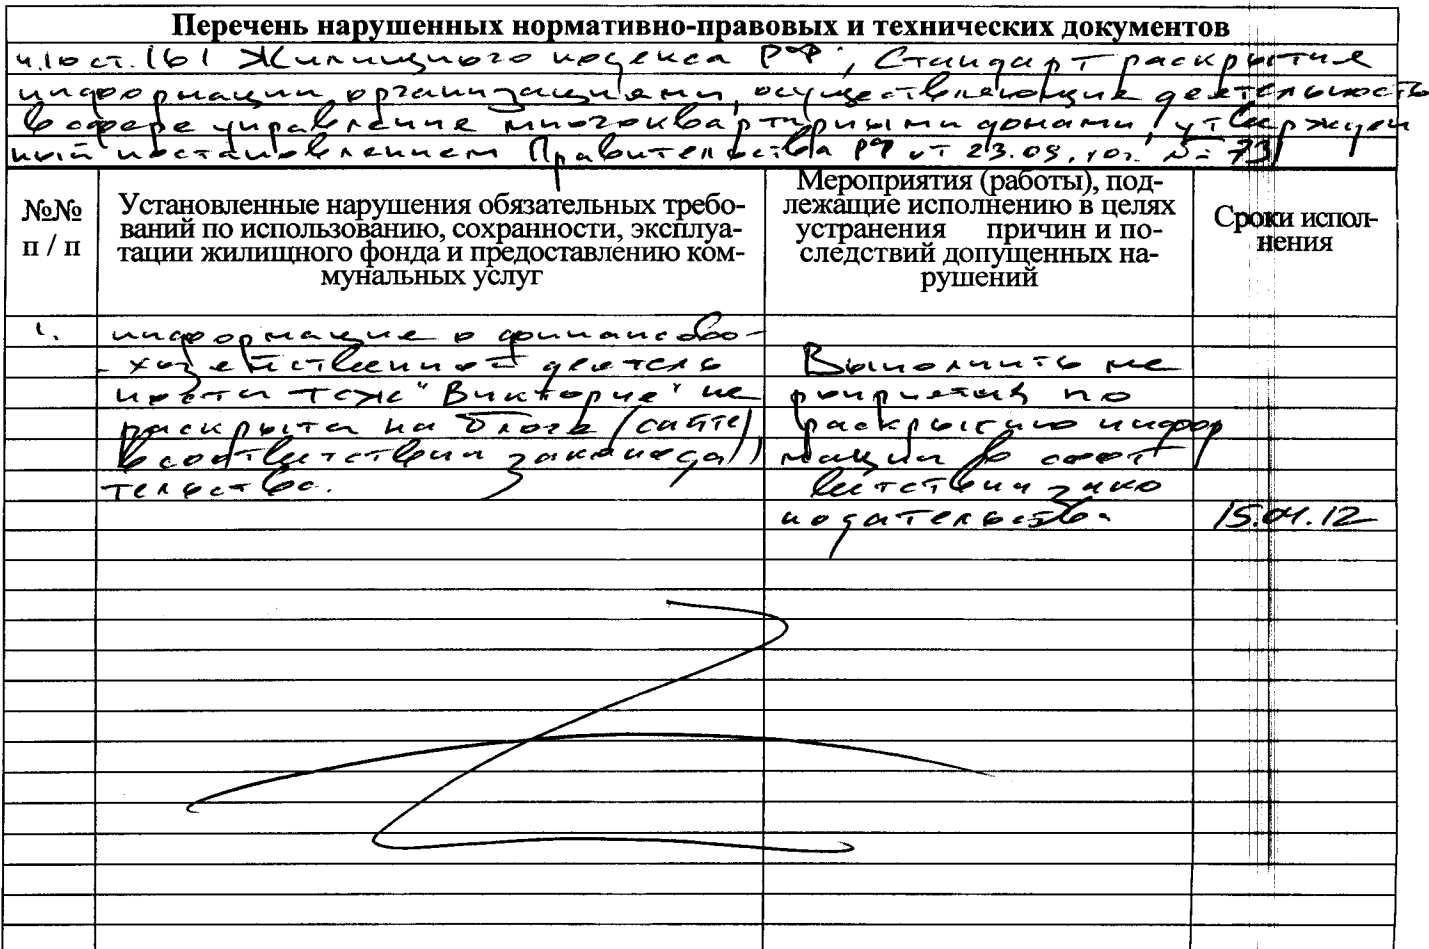 Перечень нарушенных нормативно-правовых и технических документов
ч.10 ст.161 Жилищного кодекса РФ, Стандарт раскрытия
информации организациями, осуществляющие деятельность
в сфере управление многоквартирными домами, утвержден
ный постановлением Правительства РФ от 23.09.10г. № 731
№№
п / п
Установленные нарушения обязательных требо-
ваний по использованию, сохранности, эксплуа-
тации жилищного фонда и предоставлению ком-
мунальных услуг
Мероприятия (работы), под-
лежащие исполнению в целях
устранения причин и по-
следствий допущенных на-
рушений
Сроки испол-
нения
1.
информация о финансово-
- хозяйственной деятель
ности ТСЖ "Виктория" не
раскрыта на блоге (сайте),
в соответствии законода
тельства.
Выполнить ме
роприятия по
раскрытию инфор
мации в соот
ветствии зако
нодательства
15.04.12